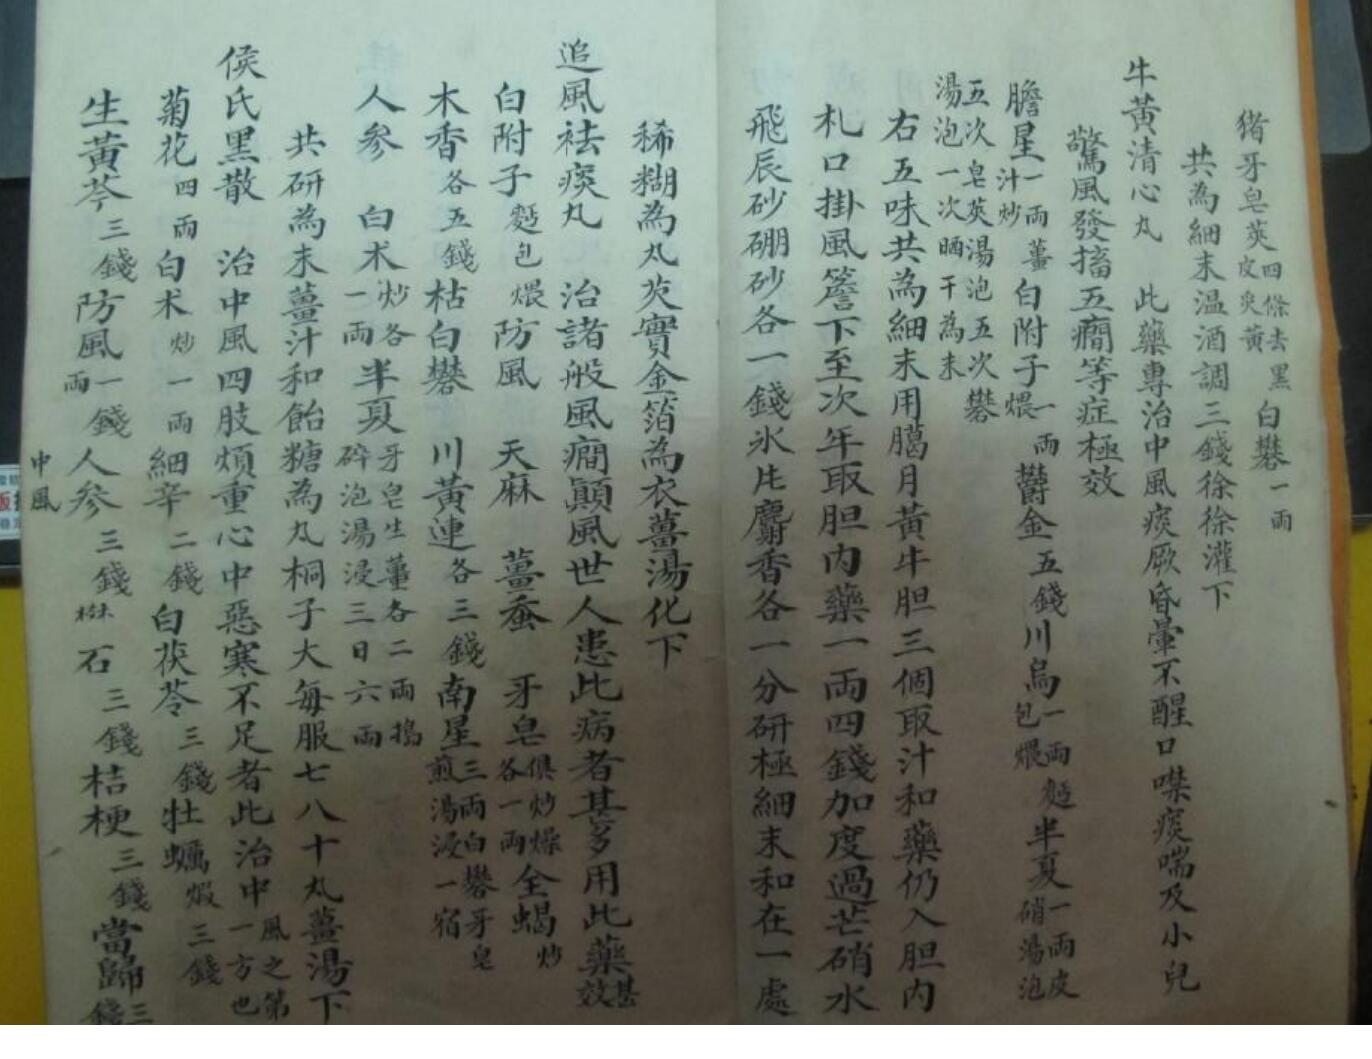 猪牙皂莢四條去黑皮炙黃白礬一兩
共為細末温酒調三錢徐徐灌下
牛黃清心丸 此藥專治中風痰厥昏暈不醒口噤痰喘及小兒
驚風發搐五癎等症極效
膽星一兩薑汁炒白附子一兩煨鬱金五錢川烏一兩麵包煨半夏一兩皮硝湯泡
五次皂莢湯泡五次礬湯泡一次晒干為末
右五味共為細末用臈月黃牛胆三個取汁和藥仍入胆內
札口掛風簷下至次年取胆內藥一兩四錢加度過芒硝水
飛辰砂硼砂各一錢氷片麝香各一分研極細末和在一處
稀糊為丸芡實金箔為衣薑湯化下
追風祛痰丸 治諸般風癎顚風世人患此病者甚多用此藥甚效
白附子麵包煨防風 天麻 薑蚕 牙皂俱炒燥各一兩全蝎炒
木香各五錢枯白礬 川黃連各三錢南星三兩白礬牙皂煎湯浸一宿
人參 白朮炒各一兩半夏牙皂生薑各二兩搗碎泡湯浸三日六兩
共研為末薑汁和飴糖為丸桐子大每服七八十丸薑湯下
侯氏黑散 治中風四肢煩重心中惡寒不足者此治中風之第一方也
菊花四兩白朮炒一兩細辛二錢白茯苓三錢牡蠣煅三錢
生黃芩三錢防風一兩錢人參三錢樕石三錢桔梗三錢當歸三錢
中風